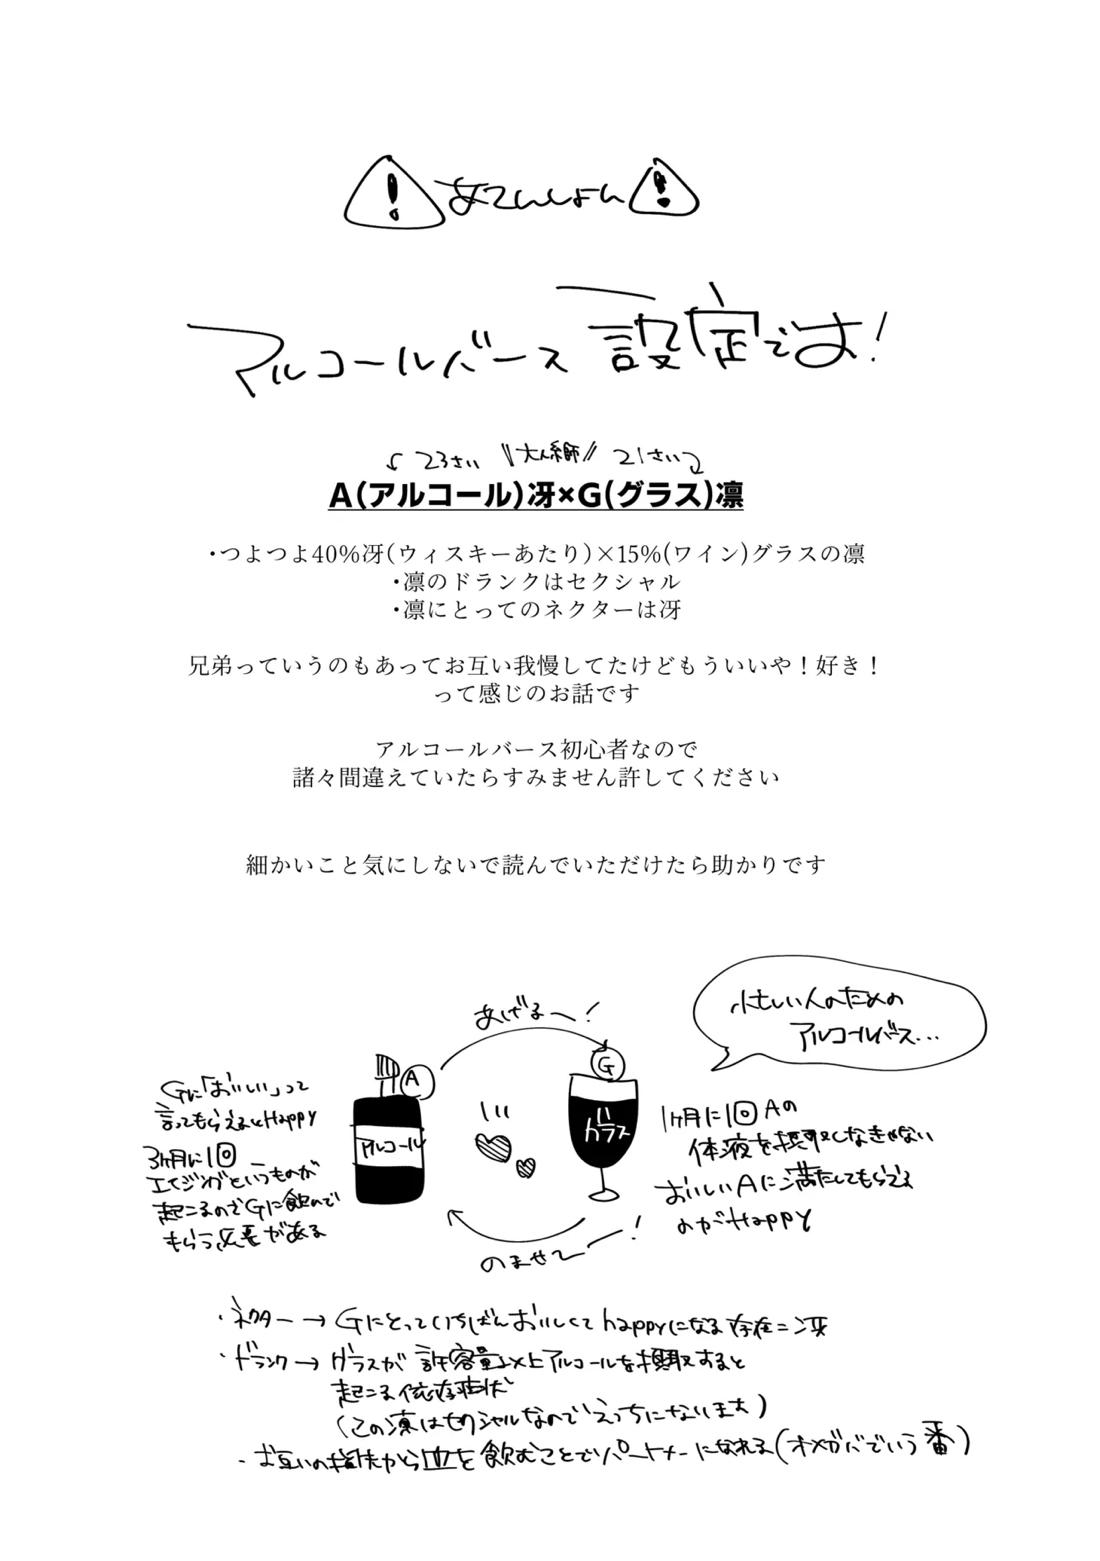 ！あてんしょん！
アルコールバース設定です！
23さい \\大人糸師// 21さい
A(アルコール)冴×G(グラス)凛
・つよつよ40%冴(ウィスキーあたり)×15%(ワイン)グラスの凛
・凛のドランクはセクシャル
・凛にとってのネクターは冴
兄弟っていうのもあってお互い我慢してたけどもういいや！好き！
って感じのお話です
アルコールバース初心者なので
諸々間違えていたらすみません許してください
細かいこと気にしないで読んでいただけたら助かりです
忙しい人のための
アルコールバース...
あげる〜！
A
G
アルコール
グラス
のませて〜！
Gに「おいしい」って
言ってもらえるとHappy
3ヶ月に1回
エイジングというものが
起こるのでGに飲んで
もらう必要がある
1ヶ月に1回Aの
体液を摂取しなきゃない
おいしいAに満たしてもらえる
のがHappy
・ネクター→Gにとっていちばんおいしくてhappyになる存在=冴
・ドランク→グラスが許容量以上アルコールを摂取すると
起こる依存症状
(この凛はセクシャルなのでえっちになります)
・お互いの指先から血を飲むことでパートナーになれる(オメガバでいう番)